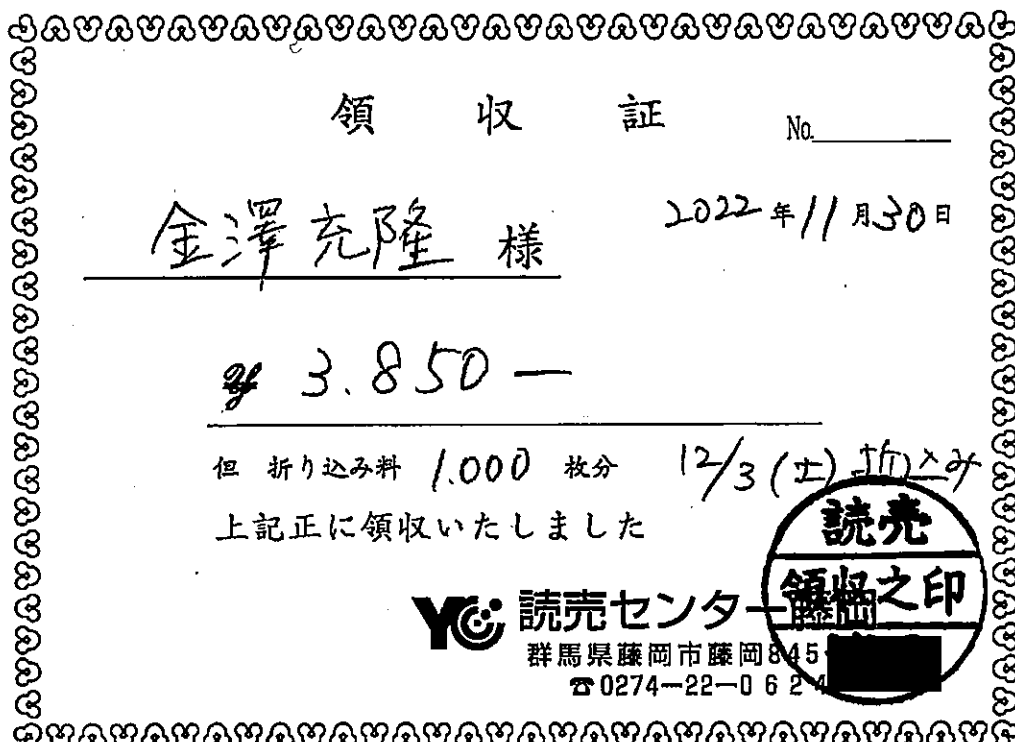 領収証
No.
金澤充隆 様
2022年11月30日
¥ 3.850—
但 折り込み料 1.000 枚分 12/3(土)折込み
上記正に領収いたしました
読売
領収之印
YC 読売センター藤岡
群馬県藤岡市藤岡845
☎0274-22-0624